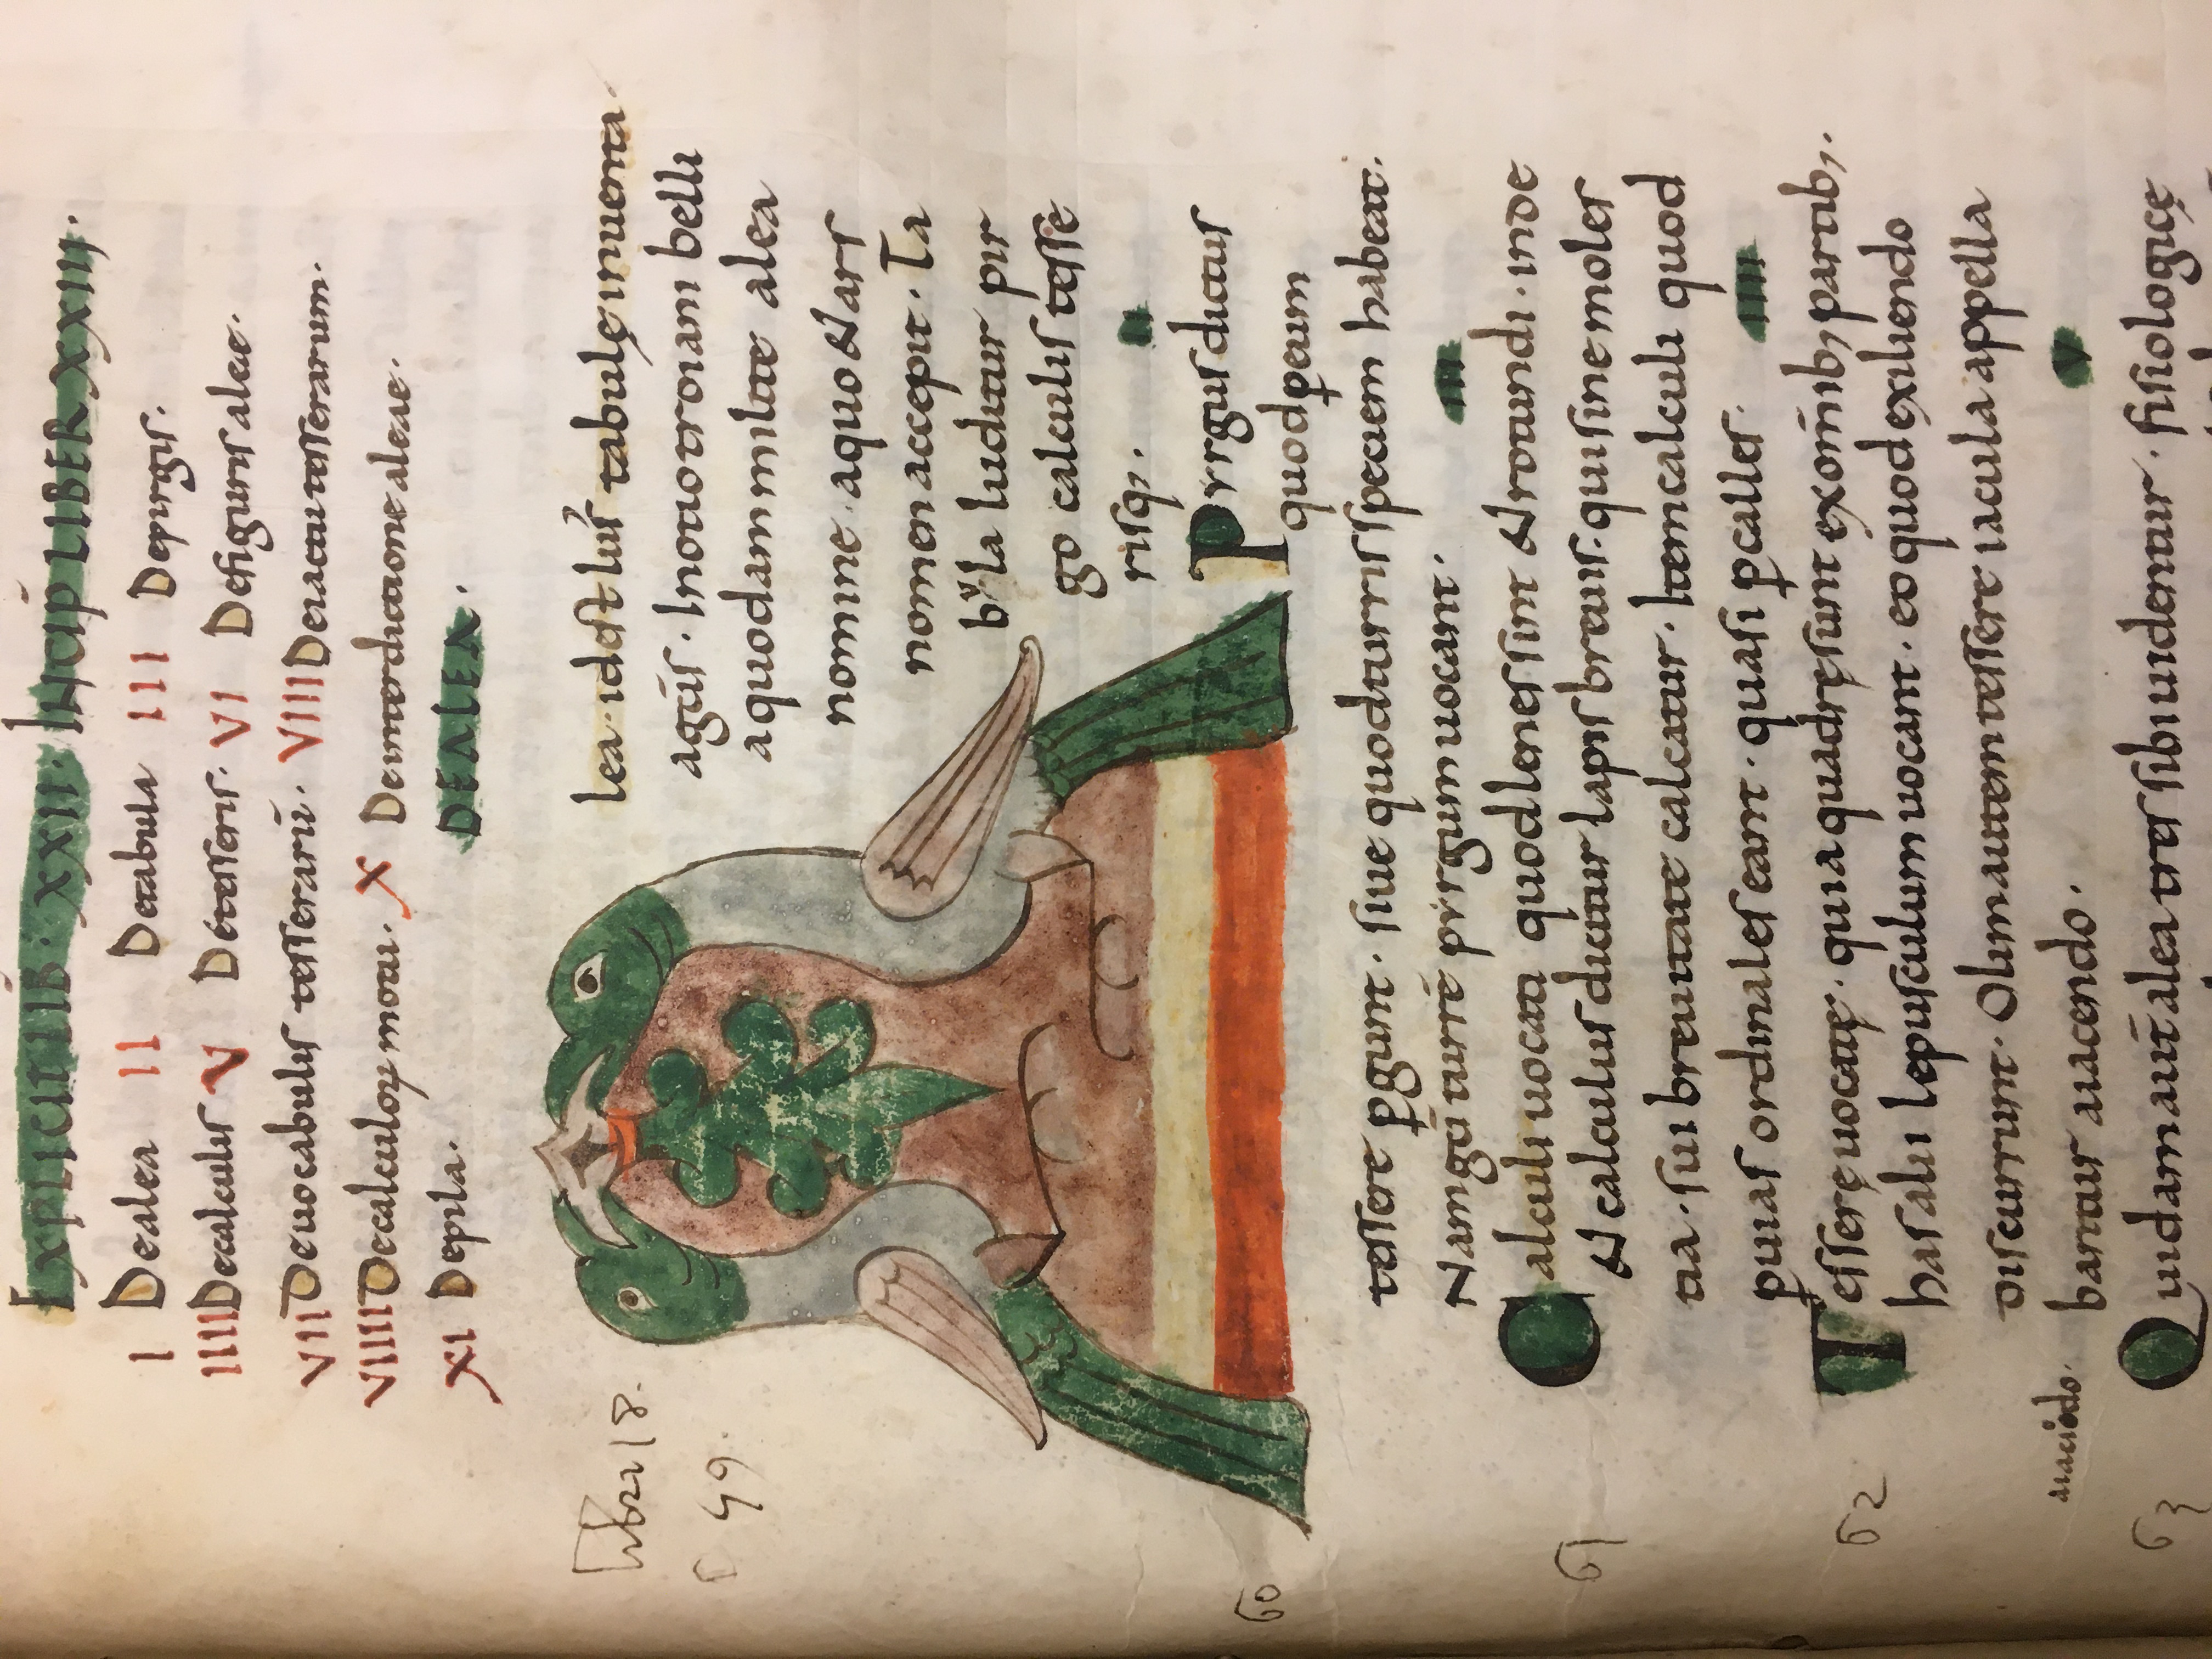 EXPLICIT LIB. XXII. INCIP LIBER XXIII.
I Dealea II Detabula III Depirgis.
IIII Decalculis V Detesseris. VI Defigurisaleae.
VII Deuocabulis tesserarū. VIII Deiactutesserarum.
VIIII Decalculoꝝ motu. X Deinterdictionealeae.
XI Depila.
DEALEA.
lea. idest lus' tabulę inuenta.
agūs. Inotiotroiani belli
aquodam milite alea
nomine. aquo & ars
nomen accepit. Ta
bula luditur pir
go calculis tesse
risq;. II
Pirgus dictus
quod ꝑeum
tessere ꝑgunt. siue quodturris speciem habeat.
Namgci turrē pirgum uocant. III
Calculi uocati quod lenes sint & rotundi. inde
& calculus dicitur lapis breuis. qui sine moles
tia. sui breuitate calcatur. Item calculi quod
ꝑuias ordinales eant. quasi ꝑcalles. IIII
Tesserę uocatę. quia quadrę sunt exomīb; partib;.
hasalii lepusculum uocant. eo quod exiliendo
discurrunt. Olim autem tessere iacula appella
bantur aiaciendo. V
Quidam aūt alea tres sibi uidentur. fisiologicę
Liber 18.
49.
60
61
62
aiaciēdo.
63